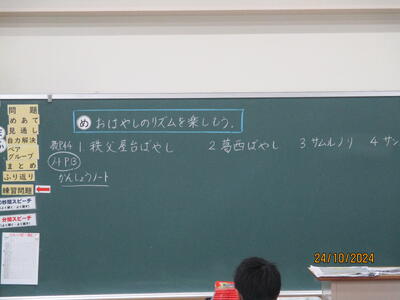 め おはやしのリズムを楽しもう。
教P.44 1 秩父屋台ばやし 2 葛西ばやし 3 サムルノリ 4 サン
ノートP.13
かんしょうノート
問題
めあて
見通し
自力解決
ペア
グループ
まとめ
ふり返り
練習問題
分間スピーチ
24/10/2024